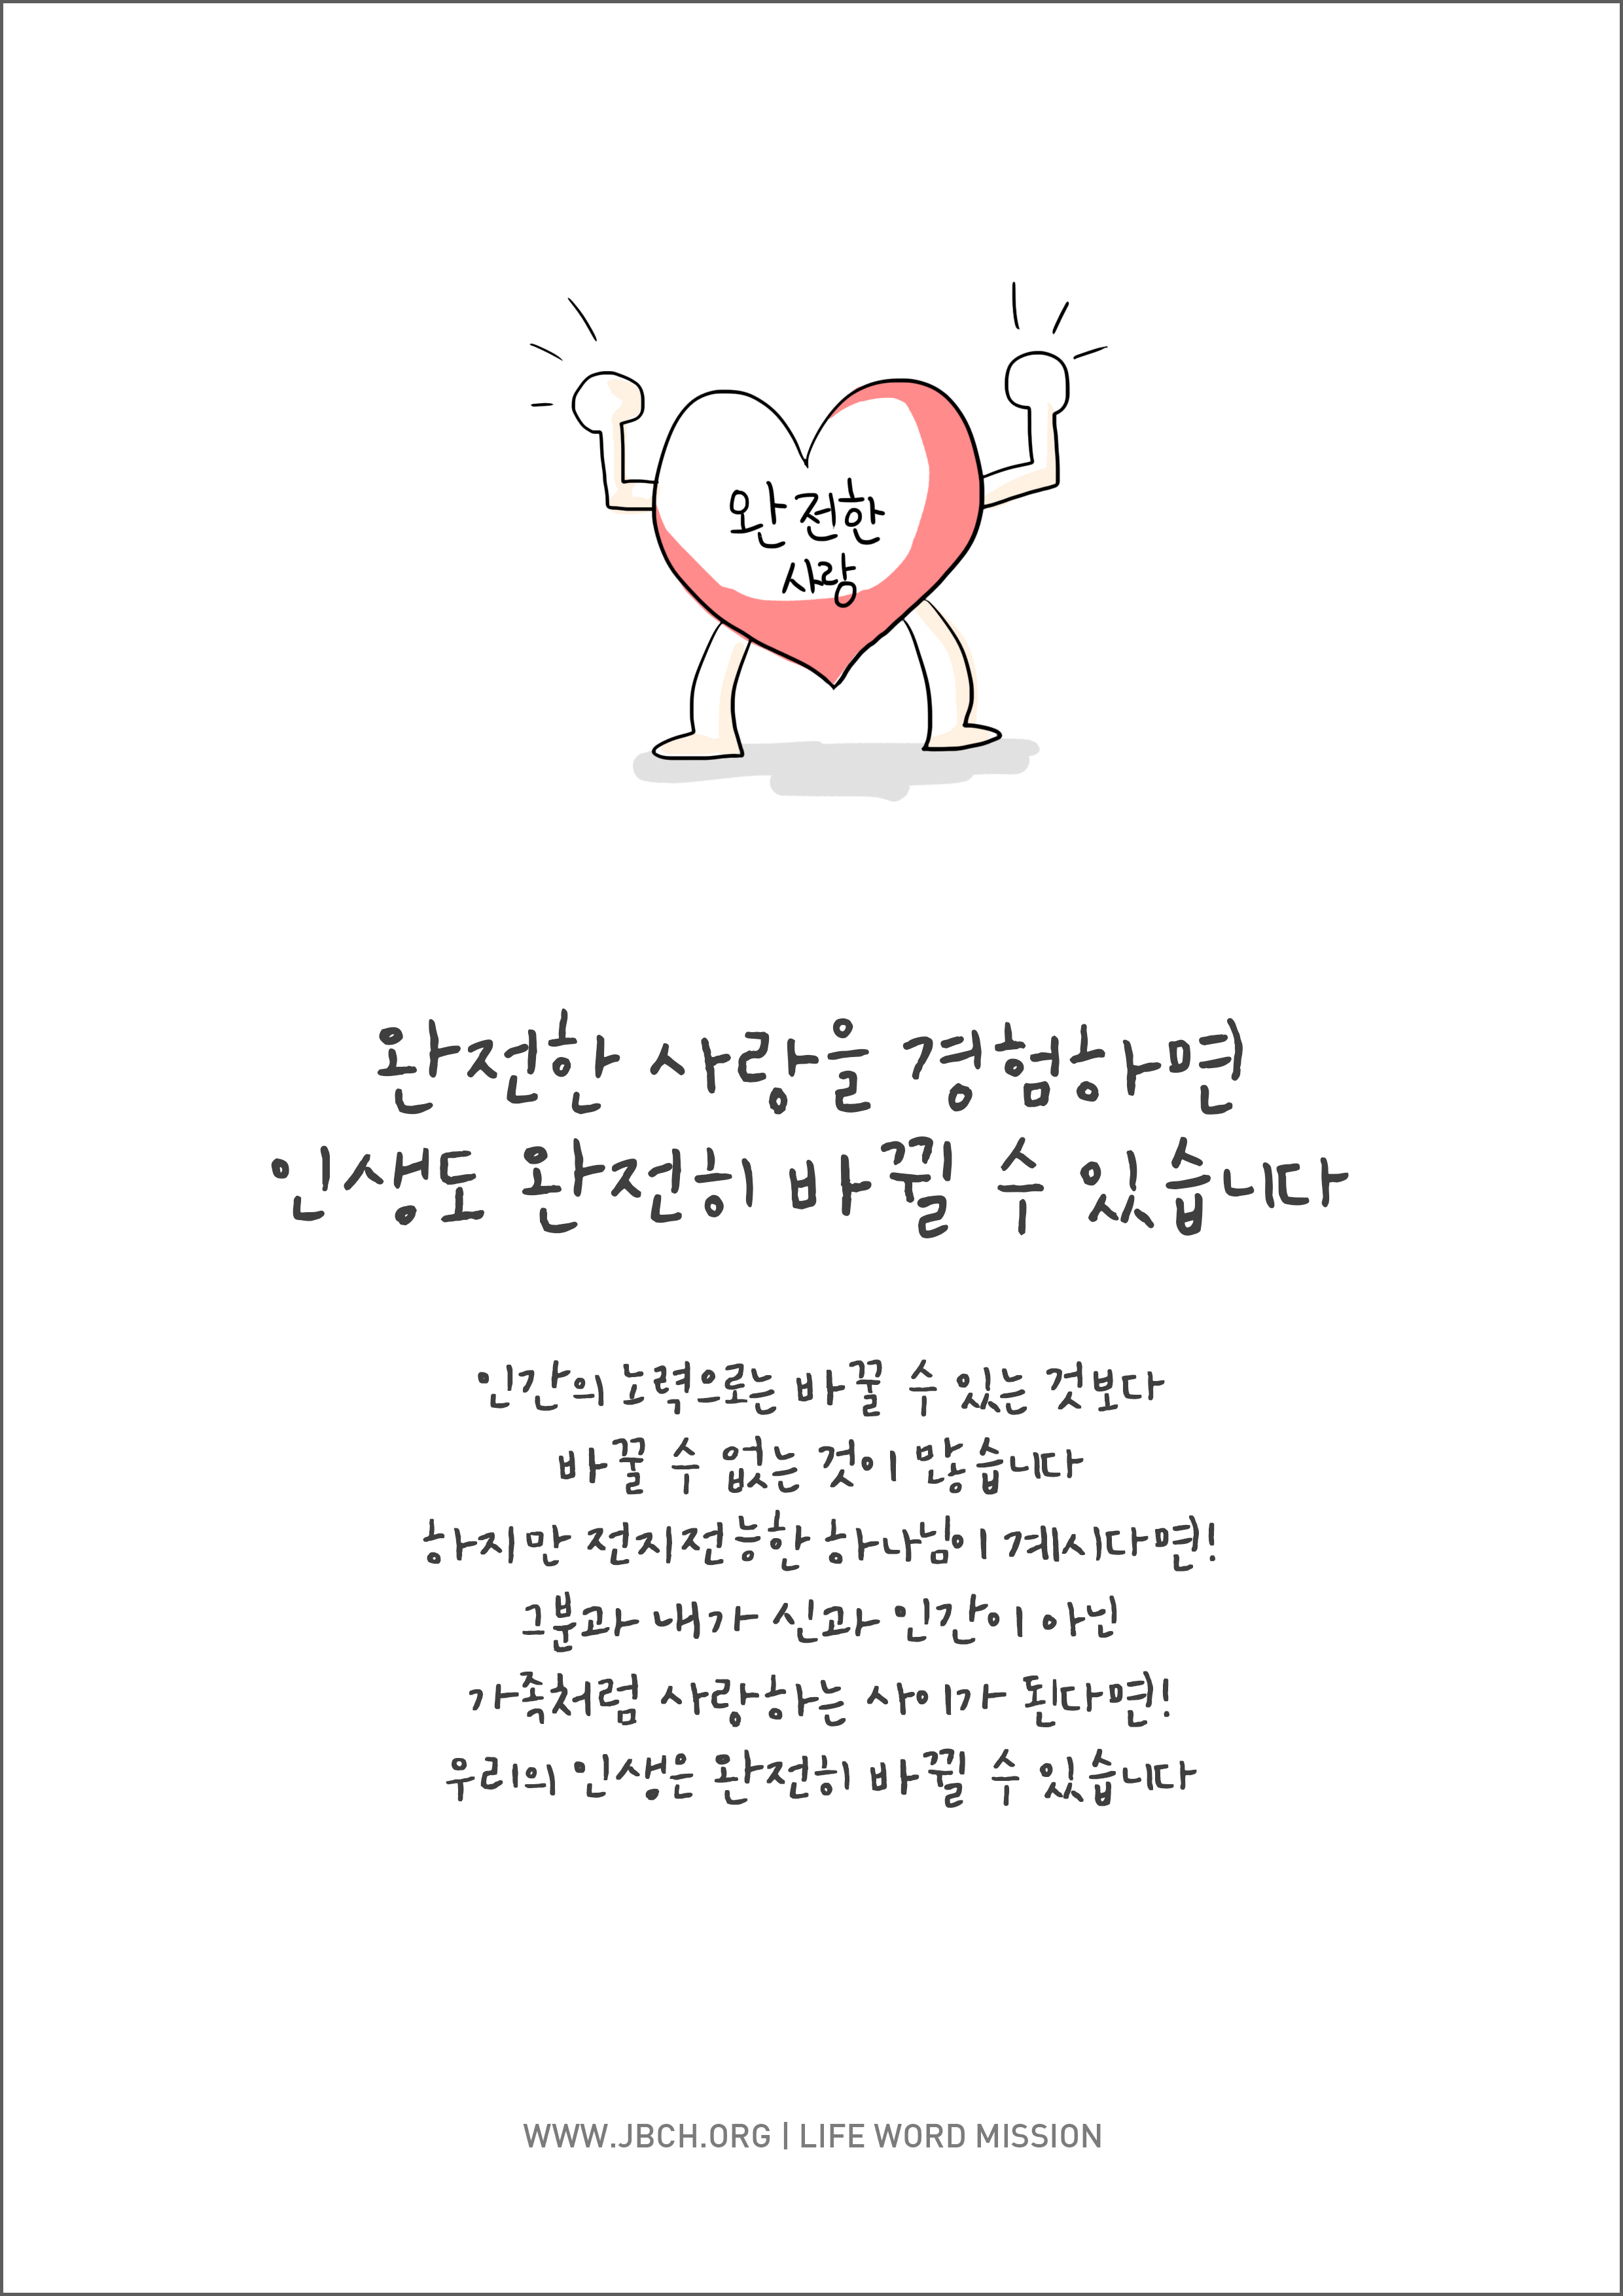 완전한
사랑
완전한 사랑을 경험하면
인생도 완전히 바뀔 수 있습니다
인간의 노력으로는 바꿀 수 있는 것보다
바꿀 수 없는 것이 많습니다
하지만 전지전능한 하나님이 계시다면!
그분과 내가 신과 인간이 아닌
가족처럼 사랑하는 사이가 된다면!
우리의 인생은 완전히 바뀔 수 있습니다
WWW.JBCH.ORG | LIFE WORD MISSION